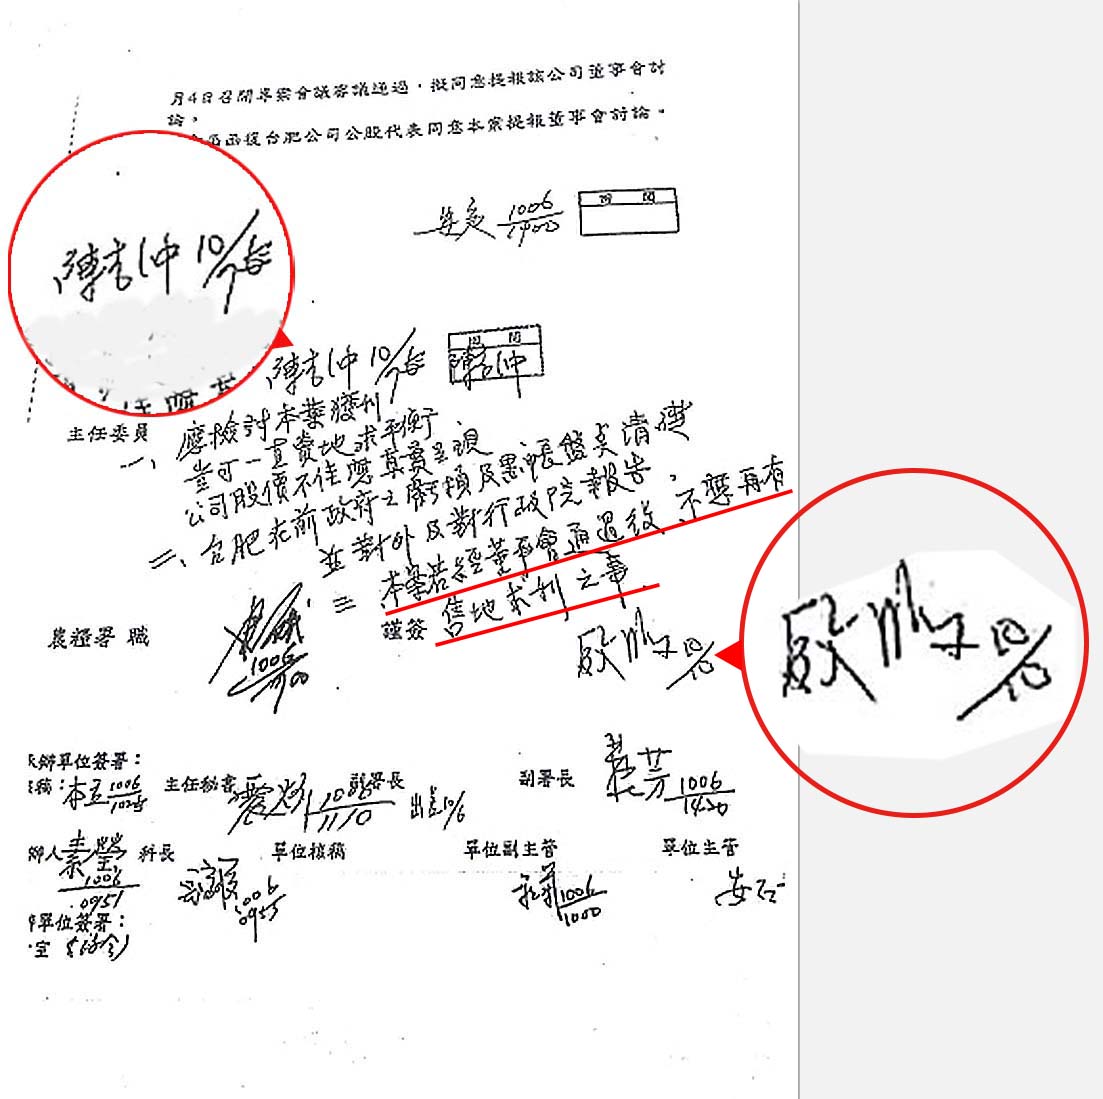 月4日召開專案會議審議通過，擬同意提報該公司董事會討
論。
函復台肥公司公股代表同意本案提報董事會討論。
1006
1400
陳吉仲 10/7
陳吉仲 10/7
陳吉仲
主任委員
一、應檢討本業獲利
豈可一直賣地求平衡
公司股價不佳應真實呈現
二、台肥在前政府之虧損及黑帳盤点清楚
並對外及對行政院報告，
三 本案若經董事會通過後，不應再有
售地求利之事
農糧署 職
1006
1100
謹簽
10/10
10/10
辦單位簽署：
稿：
1006
1025
主任秘書
1006
1110
副署長
出差10/6
副署長
芳
1006
1420
辦人
1006
0951
科長
1006
0953
單位核稿
單位副主管
1006
1000
單位主管
單位簽署：
室